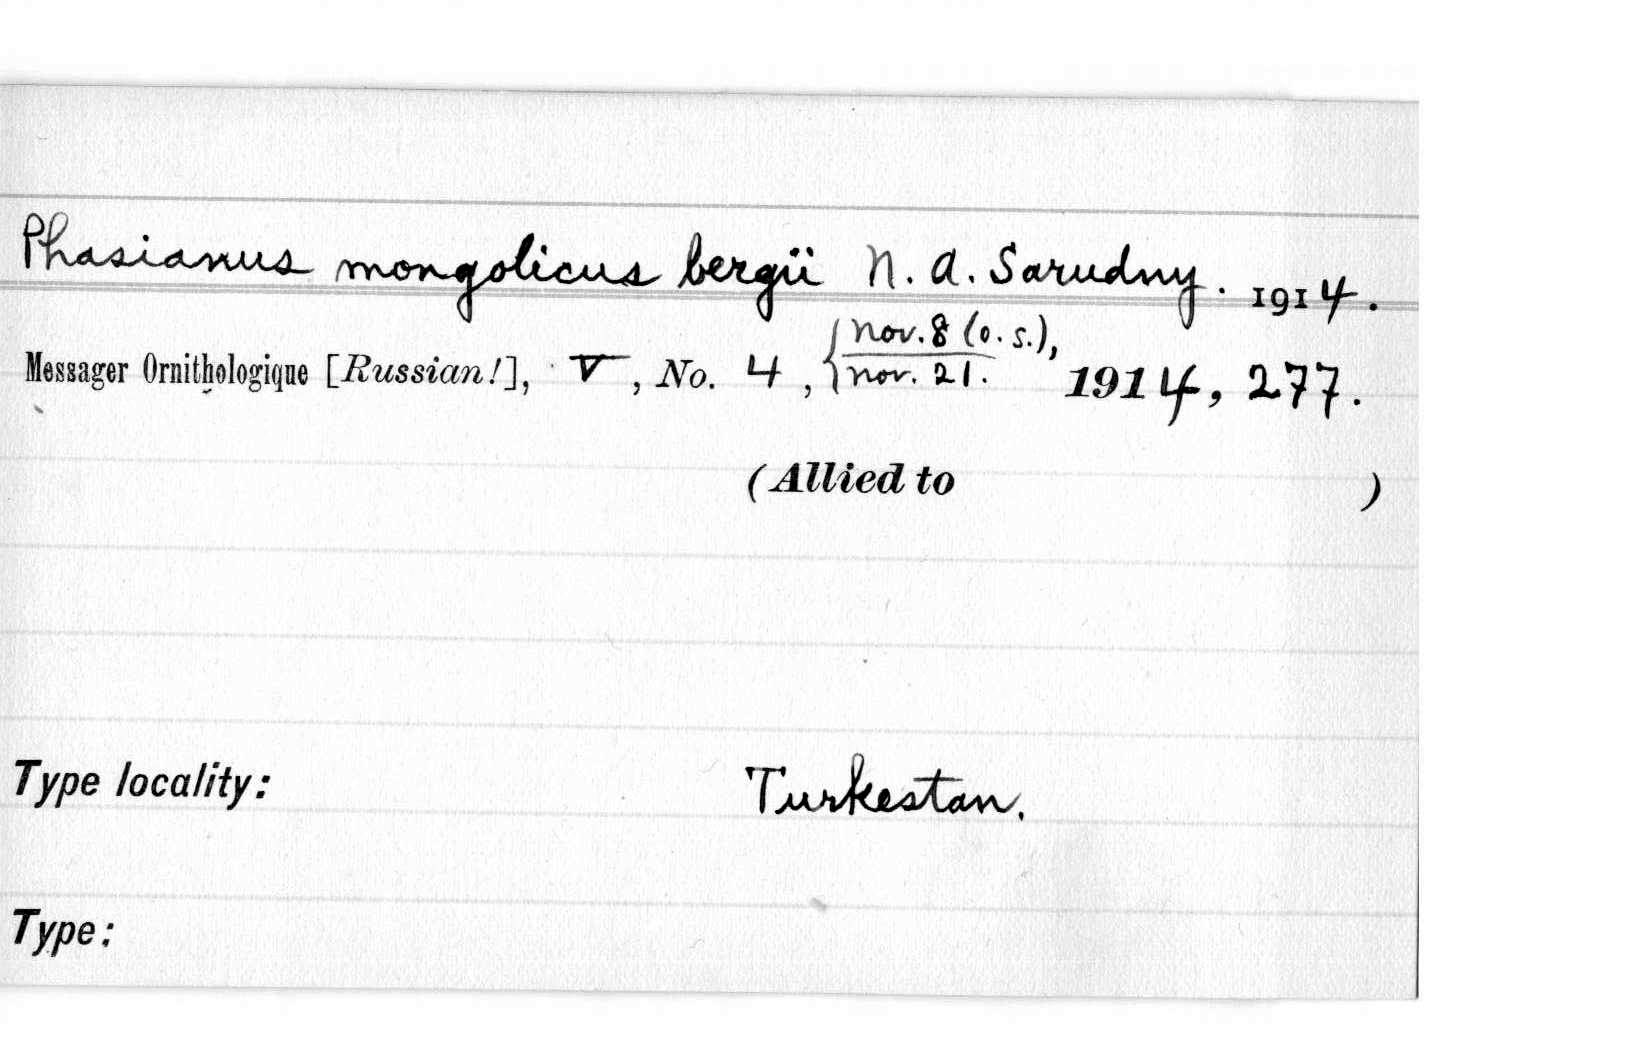 Phasianus mongolicus bergii N. A. Sarudny. 1914.
Messager Ornithologique [Russian!], V, No. 4, {Nov. 8 (o. s.), Nov. 21. 1914, 277.
(Allied to )
Type locality: Turkestan.
Type: